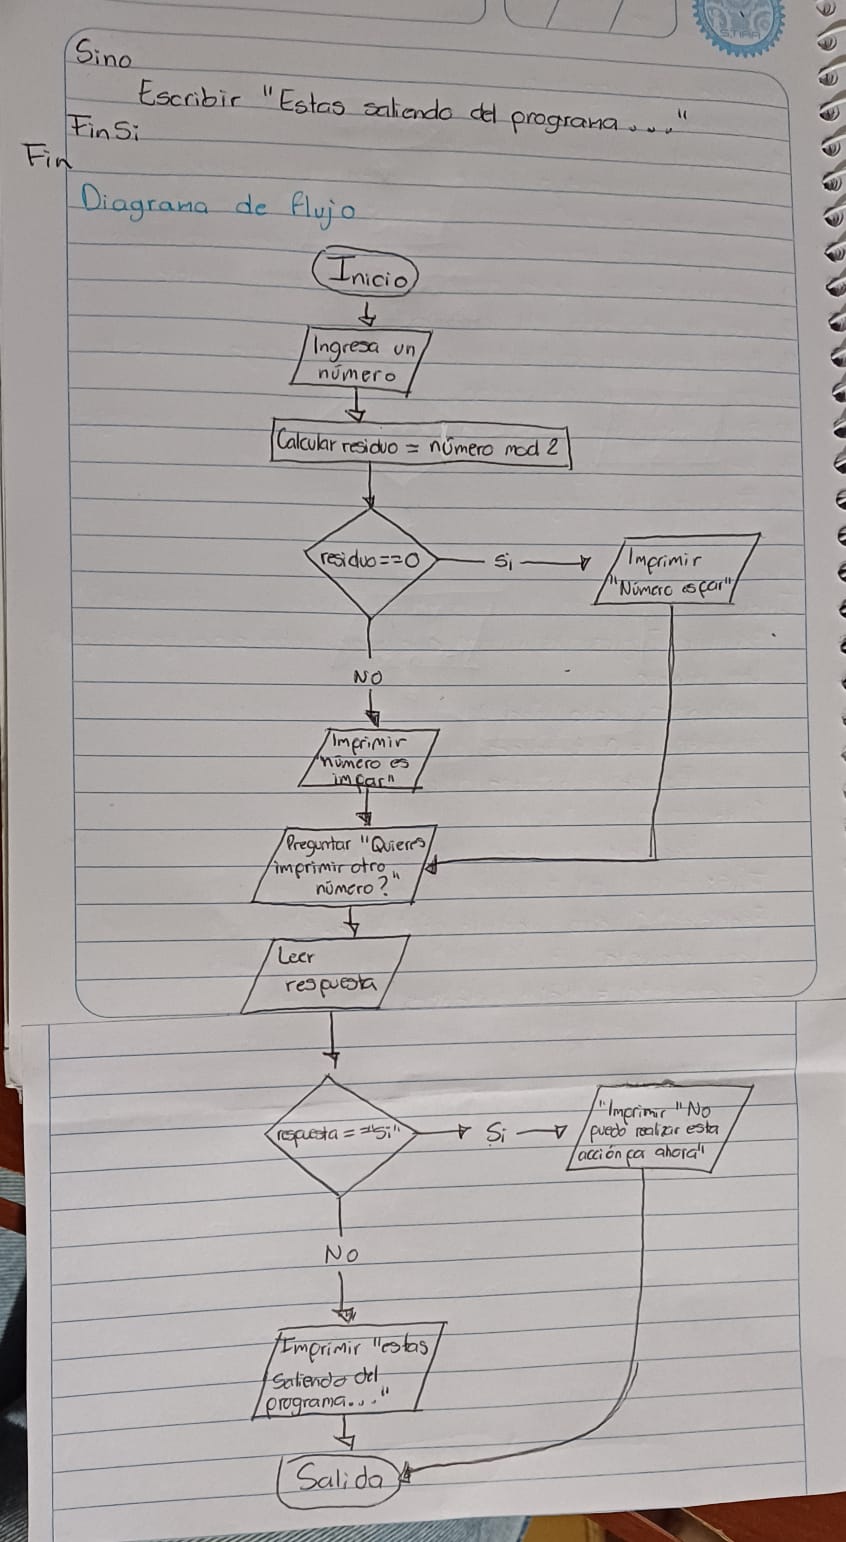 Sino
Escribir "Estas saliendo del programa..."
FinSi
Fin
Diagrama de flujo
Inicio
Ingresa un
número
Calcular residuo = número mod 2
residuo==0
Si
Imprimir
"Número es par"
NO
Imprimir
"número es
impar"
Preguntar "Quieres
imprimir otro
número?"
Leer
respuesta
respuesta=="Si"
Si
"Imprimir "No
puedo realizar esta
acción pa ahora"
NO
Imprimir "estas
Saliendo del
programa..."
Salida